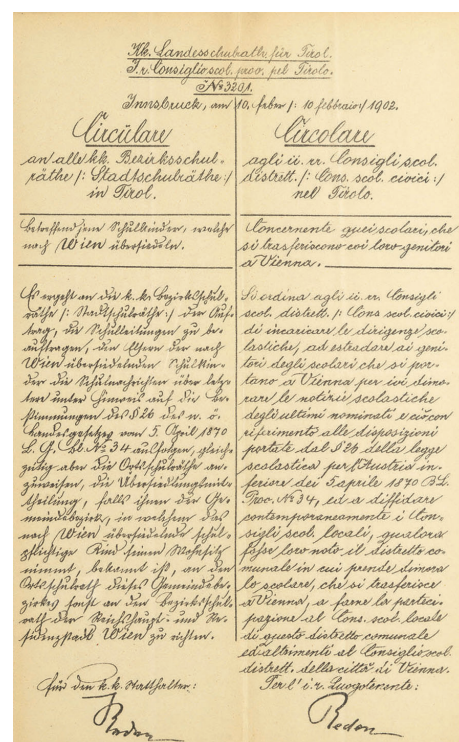 Kk. Landesschulrath für Tirol.
I. r. Consiglio scol. prov. pel Tirolo.
№ 3201.
Innsbruck, am 10. feber /: 10 febbraio :/ 1902.
Circulare
an alle kk. Bezirksschul-
räthe /: Stadtschulräthe :/
in Tirol.
betreffend jene Schulkinder, welche
nach Wien übersiedeln.
Es ergeht an die k. k. Bezirksschul-
räthe /: Stadtschulräthe :/ der Auf-
trag, die Schulleitungen zu be-
auftragen, den Eltern der nach
Wien übersiedelnden Schulkin-
der die Schulnachrichten über letz-
tere unter Hinweis auf die Be-
stimmungen des § 26 des n. ö.
Landesgesetzes vom 5. April 1870
L. G. Bl. № 34 auszufolgen, gleich-
zeitig aber die Ortsschulräthe an-
zuweisen, die Übersiedlungsmit-
theilung, falls ihnen der Ge-
meindebezirk, in welchem das
nach Wien übersiedelnde schul-
pflichtige Kind seinen Wohnsitz
nimmt, bekannt ist, an den
Ortsschulrath dieses Gemeindebe-
zirkes sonst an den Bezirksschul-
rath der Reichshaupt- und Re-
sidenzstadt Wien zu richten.
Für den k. k. Statthalter:
Reden
Circolare
agli ii. rr. Consigli scol.
distrett. /: Cons. scol. civici :/
nel Tirolo.
Concernente quei scolari, che
si trasferiscono coi loro genitori
a Vienna.
Si ordina agli ii. rr. Consigli
scol. distrett. /: Cons. scol. civici :/
di incaricare le dirigenze sco-
lastiche, ad estradare ai geni-
tori degli scolari che si por-
tano a Vienna per ivi dimo-
rare le notizie scolastiche
degli ultimi nominati e ciò con
riferimento alle disposizioni
portate dal § 26 della legge
scolastica per l'Austria in-
feriore dei 5 aprile 1870 B. L.
Prov. № 34, ed a diffidare
contemporaneamente i Con-
sigli scol. locali, qualora
fosse loro noto il distretto co-
munale in cui prende dimora
lo scolare, che si trasferisce
a Vienna, a farne la parteci-
pazione al Cons. scol. locale
di questo distretto comunale
ed altrimenti al Consiglio scol.
distrett. della città di Vienna.
Per l'i. r. Luogotenente:
Reden